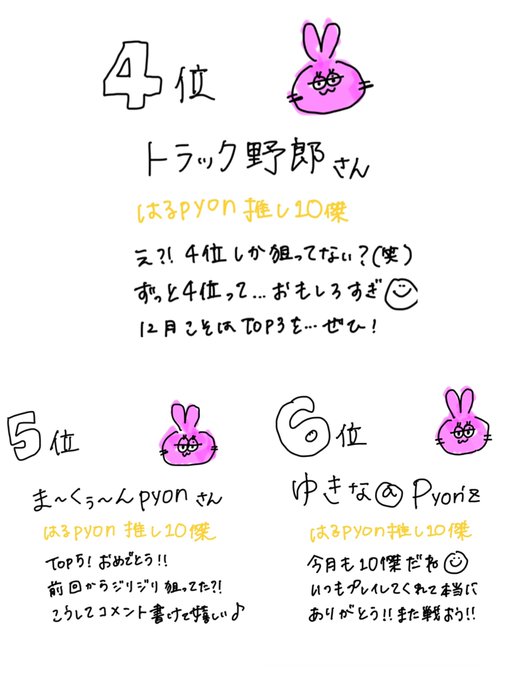 4位
トラック野郎さん
はるpyon推し10傑
え?! 4位しか狙ってない?(笑)
ずっと4位って…おもしろすぎ
12月こそはTOP3を…ぜひ!
5位
ま〜くぅ〜んpyonさん
はるpyon推し10傑
TOP5! おめでとう!!
前回からジリジリ狙ってた?!
こうしてコメント書けて嬉しい♪
6位
ゆきな@Pyon'z
はるpyon推し10傑
今月も10傑だね
いつもプレイしてくれて本当に
ありがとう!!また戦おう!!